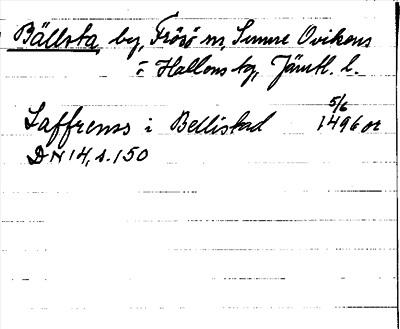 Bällsta, by, Frösö m, Sunne Ovikens
i Hallens tg, Jämtl. l.
Laffrenss i Bellistad 5/6 1496 or
DN 14, s. 150